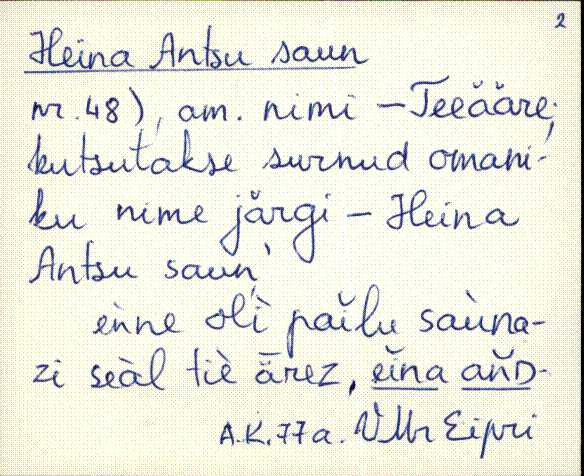 2
Heina Antsu saun
nr. 48), am. nimi – Teeääre;
kutsutakse surnud omani-
ku nime järgi – Heina
Antsu saun.
eǹne olì paĭlu saùna-
zi seàl tiè ārez, eĭna aǹD-
A.K. 77 a. VMr Eipri